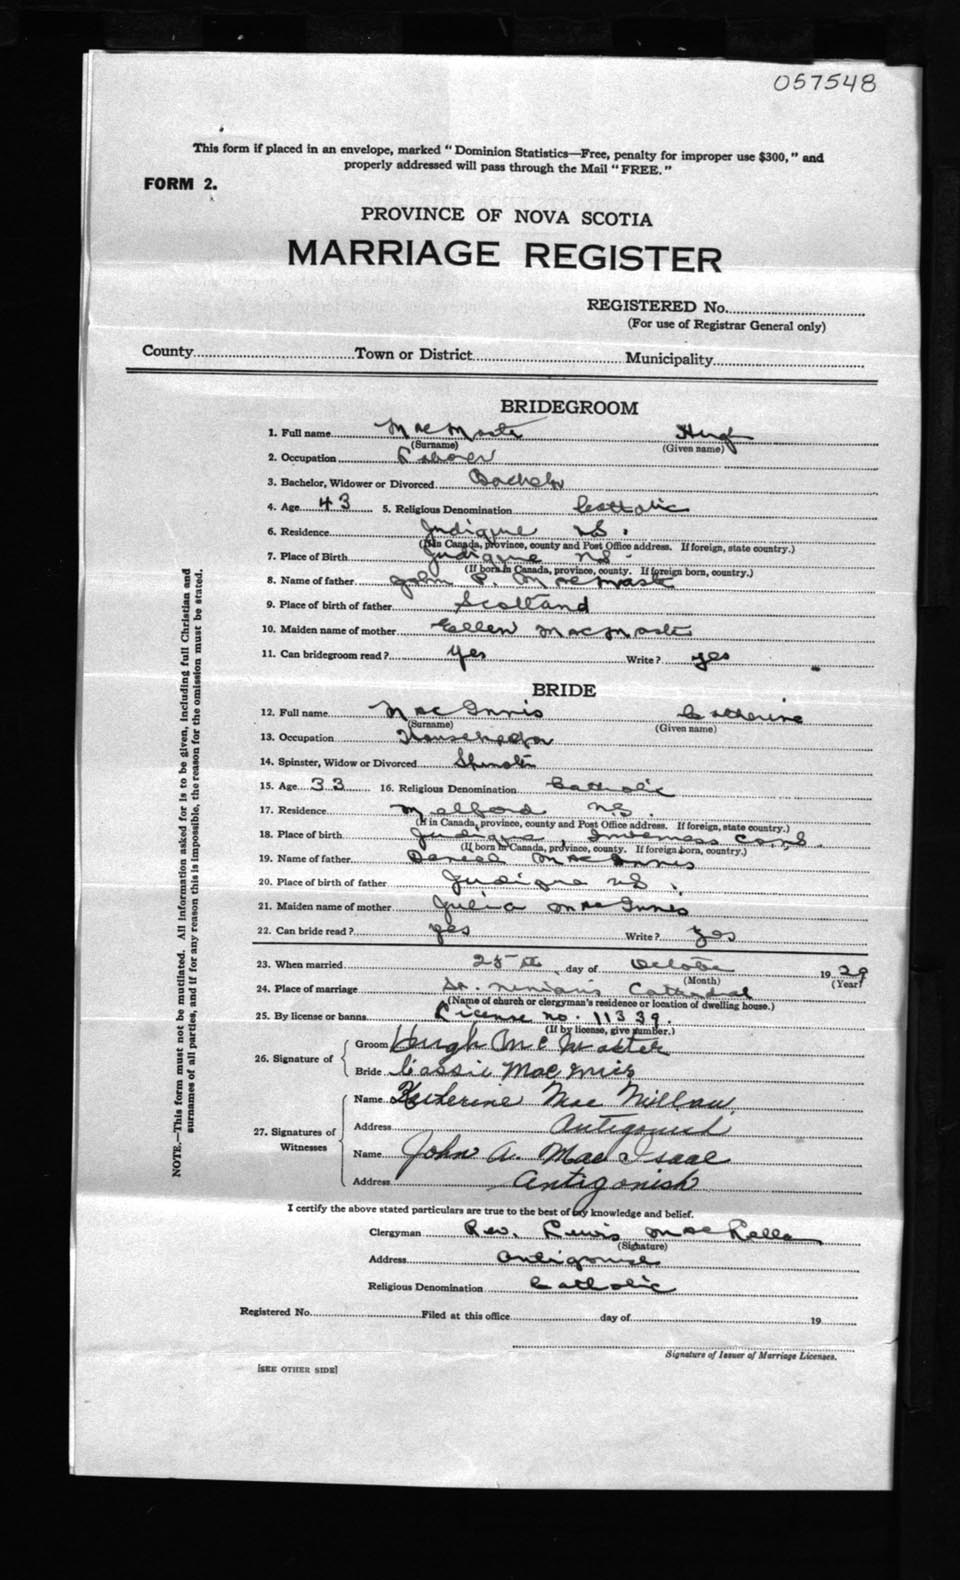 057548
This form if placed in an envelope, marked "Dominion Statistics—Free, penalty for improper use $300," and
properly addressed will pass through the Mail "FREE."
FORM 2.
PROVINCE OF NOVA SCOTIA
MARRIAGE REGISTER
REGISTERED No.
(For use of Registrar General only)
County Town or District Municipality
BRIDEGROOM
1. Full name MacMaster Hugh
(Surname) (Given name)
2. Occupation Laborer
3. Bachelor, Widower or Divorced Bachelor
4. Age 43 5. Religious Denomination Catholic
6. Residence Judique NS.
(If in Canada, province, county and Post Office address. If foreign, state country.)
7. Place of Birth Judique NS
(If born in Canada, province, county. If foreign born, country.)
8. Name of father John P. MacMaster
9. Place of birth of father Scotland
10. Maiden name of mother Ellen MacMaster
11. Can bridegroom read? Yes Write? yes
BRIDE
12. Full name MacInnis Catherine
(Surname) (Given name)
13. Occupation Housekeeper
14. Spinster, Widow or Divorced Spinster
15. Age 33 16. Religious Denomination Catholic
17. Residence Melford NS.
(If in Canada, province, county and Post Office address. If foreign, state country.)
18. Place of birth Judique, Inverness
(If born in Canada, province, county. If foreign born, country.)
19. Name of father Daniel MacInnis
20. Place of birth of father Judique NS.
21. Maiden name of mother Julia MacInnes
22. Can bride read? yes Write? yes
23. When married 25th day of October 1929
(Month) (Year)
24. Place of marriage St. Ninian's Cathedral
(Name of church or clergyman's residence or location of dwelling house.)
25. By license or banns License no. 11339.
(If by license, give number.)
26. Signature of
Groom Hugh McMaster
Bride Cassie MacInnis
27. Signatures of Witnesses
Name Katherine MacMillan
Address Antigonish
Name John A. MacIsaac
Address Antigonish
I certify the above stated particulars are true to the best of my knowledge and belief.
Clergyman Rev. Lewis MacLellan
(Signature)
Address Antigonish
Religious Denomination Catholic
Registered No. Filed at this office day of 19
Signature of Issuer of Marriage Licenses.
[SEE OTHER SIDE]
NOTE.—This form must not be mutilated. All information asked for is to be given, including full Christian and
surnames of all parties, and if for any reason this is impossible, the reason for the omission must be stated.